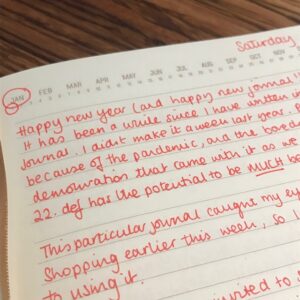 Saturday
JAN FEB MAR APR MAY JUN JUL AUG SEP OCT NOV
Happy new year (and happy new journal)
It has been a while since I have written in
journal. I didnt make it a week last year.
because of the pandemic, and the bore
demotivation that came with it as we
22. def has the potential to be MUCH be
This particular journal caught my ey
shopping earlier this week, so I
to using it.
invited to